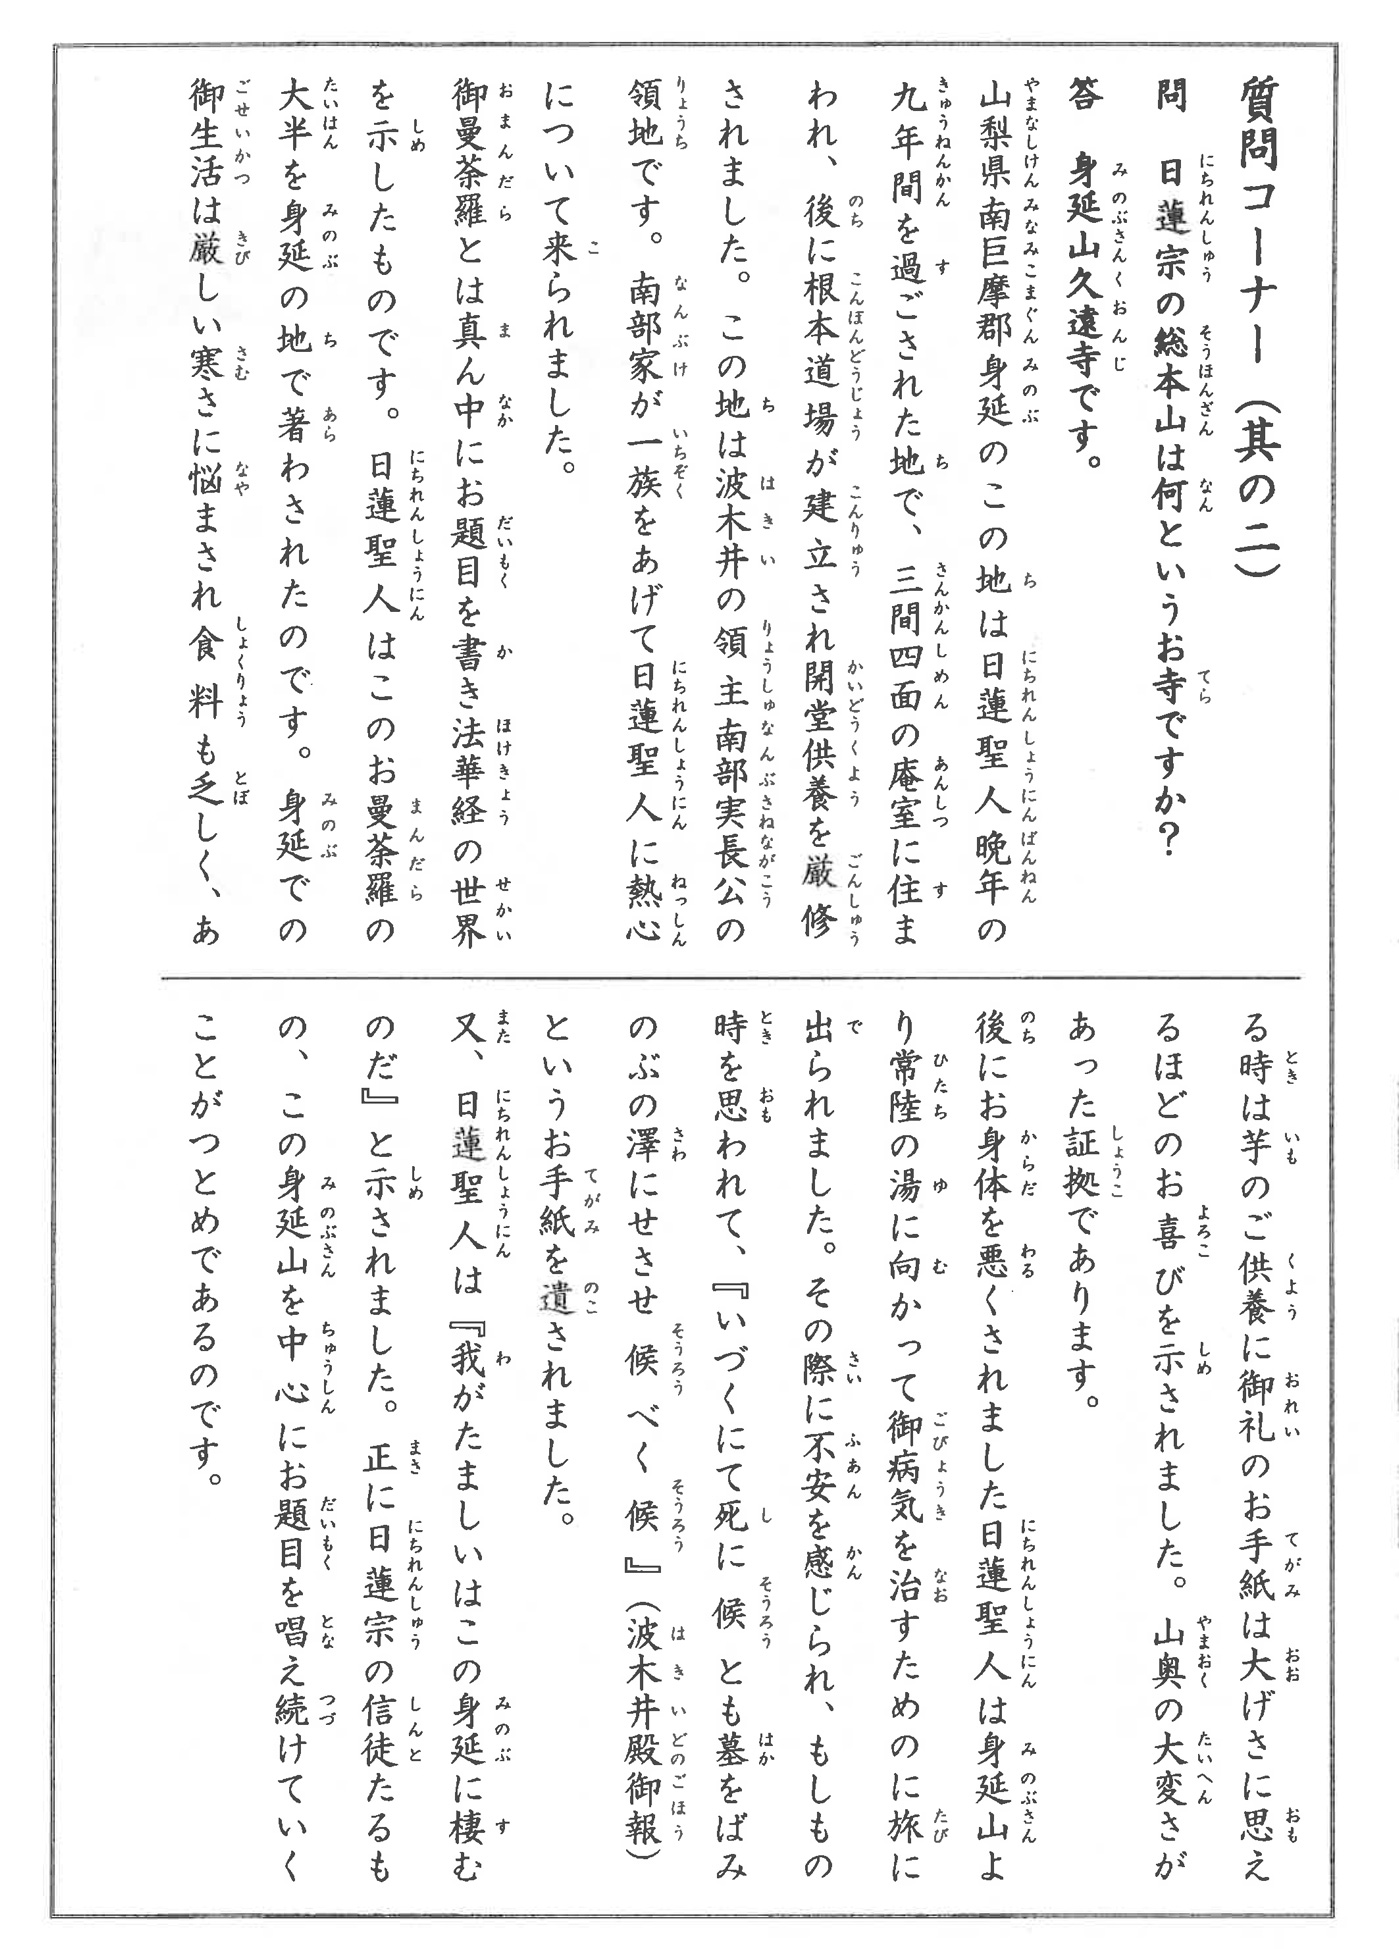 質問コーナー（其の二）
問　日蓮宗の総本山は何というお寺ですか？
答　身延山久遠寺です。
山梨県南巨摩郡身延のこの地は日蓮聖人晩年の
九年間を過ごされた地で、三間四面の庵室に住ま
われ、後に根本道場が建立され開堂供養を厳修
されました。この地は波木井の領主南部実長公の
領地です。南部家が一族をあげて日蓮聖人に熱心
について来られました。
御曼荼羅とは真ん中にお題目を書き法華経の世界
を示したものです。日蓮聖人はこのお曼荼羅の
大半を身延の地で著わされたのです。身延での
御生活は厳しい寒さに悩まされ食料も乏しく、あ
る時は芋のご供養に御礼のお手紙は大げさに思え
るほどのお喜びを示されました。山奥の大変さが
あった証拠であります。
後にお身体を悪くされました日蓮聖人は身延山よ
り常陸の湯に向かって御病気を治すためのに旅に
出られました。その際に不安を感じられ、もしもの
時を思われて、『いづくにて死に候とも墓をばみ
のぶの澤にせさせ候べく候』（波木井殿御報）
というお手紙を遺されました。
又、日蓮聖人は『我がたましいはこの身延に棲む
のだ』と示されました。正に日蓮宗の信徒たるも
の、この身延山を中心にお題目を唱え続けていく
ことがつとめであるのです。